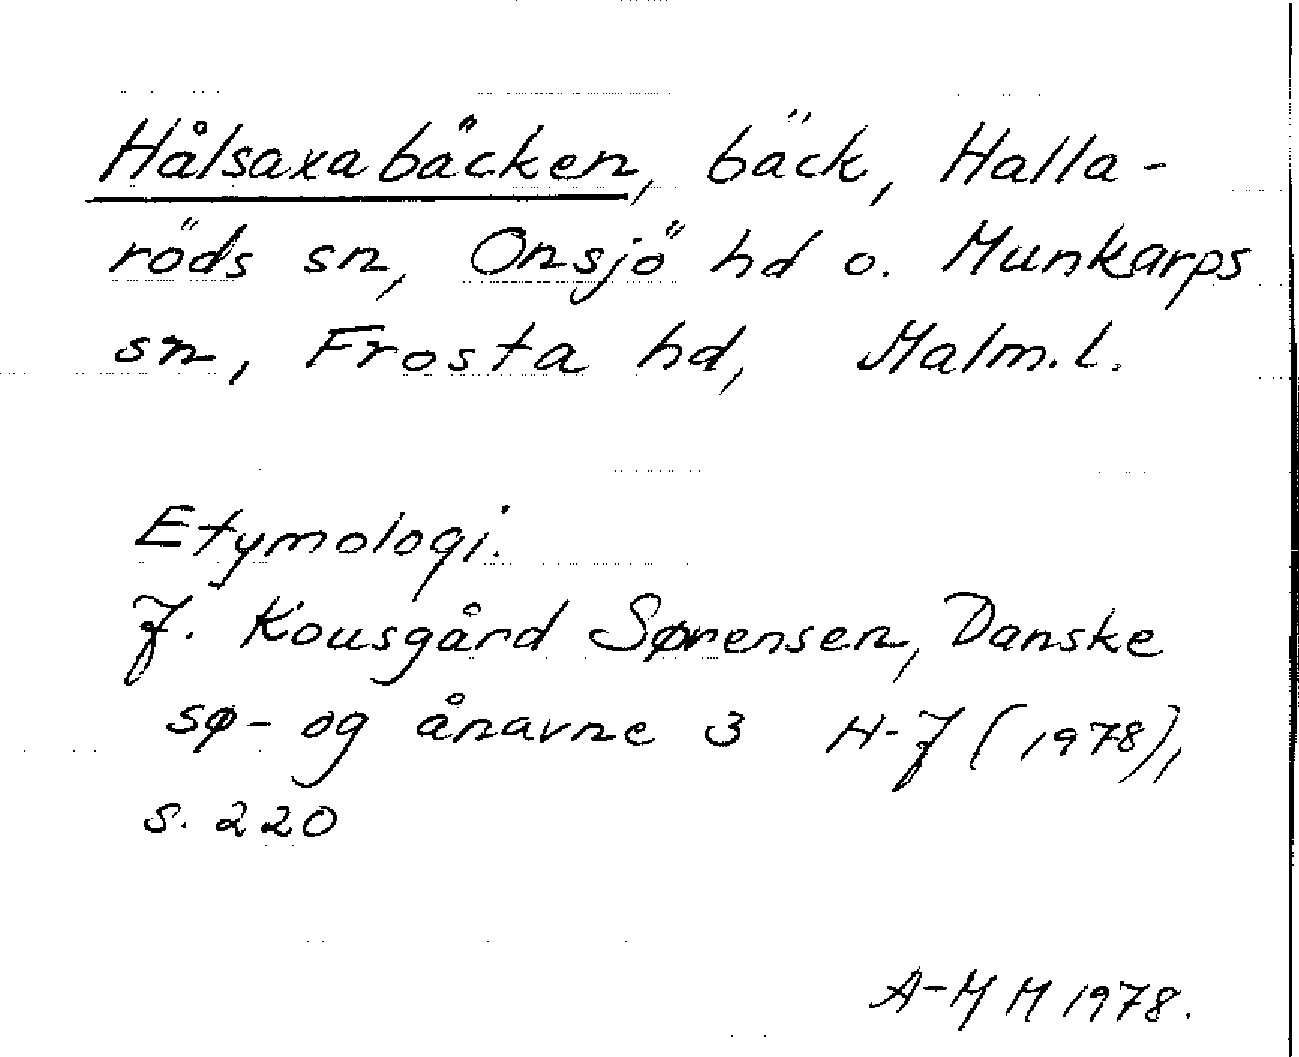 Hålsaxabäcken, bäck, Halla-
röds sn, Onsjö hd o. Munkarps
sn, Frosta hd, Malm.l.
Etymologi.
J. Kousgård Sørensen, Danske
sø- og ånavne 3 H-J (1978),
s. 220
A-M M 1978.